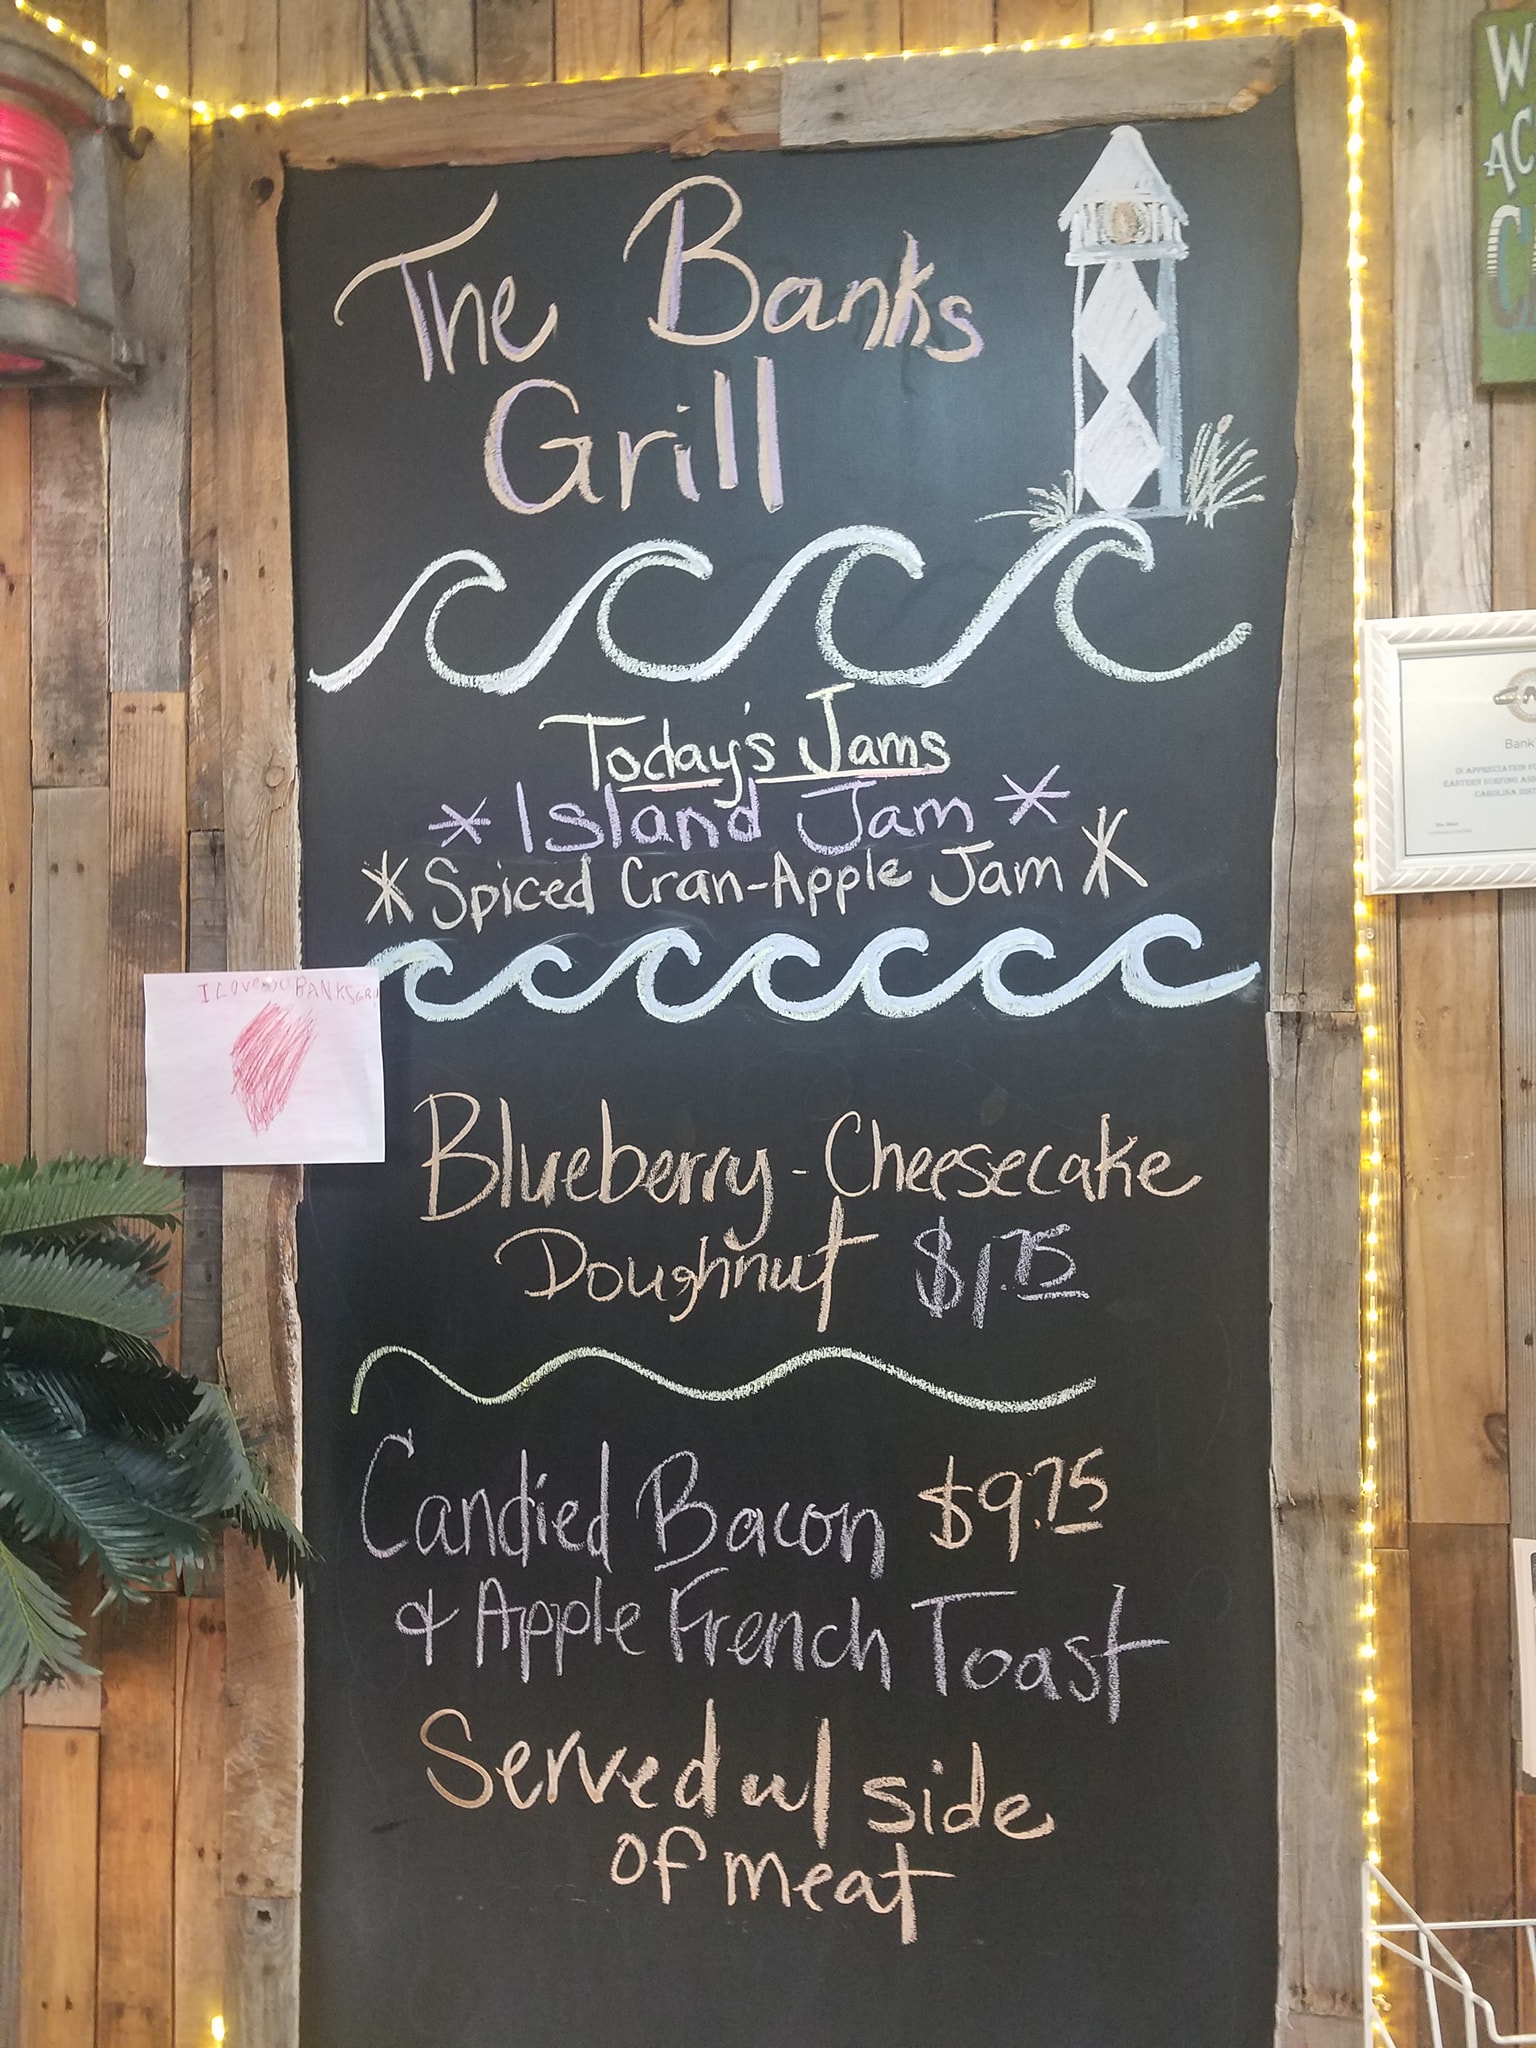 The Banks
Grill
Today's Jams
* Island Jam *
* Spiced Cran-Apple Jam *
I LOVE BANKS GRI
Blueberry-Cheesecake
Doughnut $1.75
Candied Bacon $9.75
& Apple French Toast
Served w/ side
of meat
W
AC
C
Bank
IN APPRECIATION FO
EASTERN SURFING AS
CAROLINA DIST